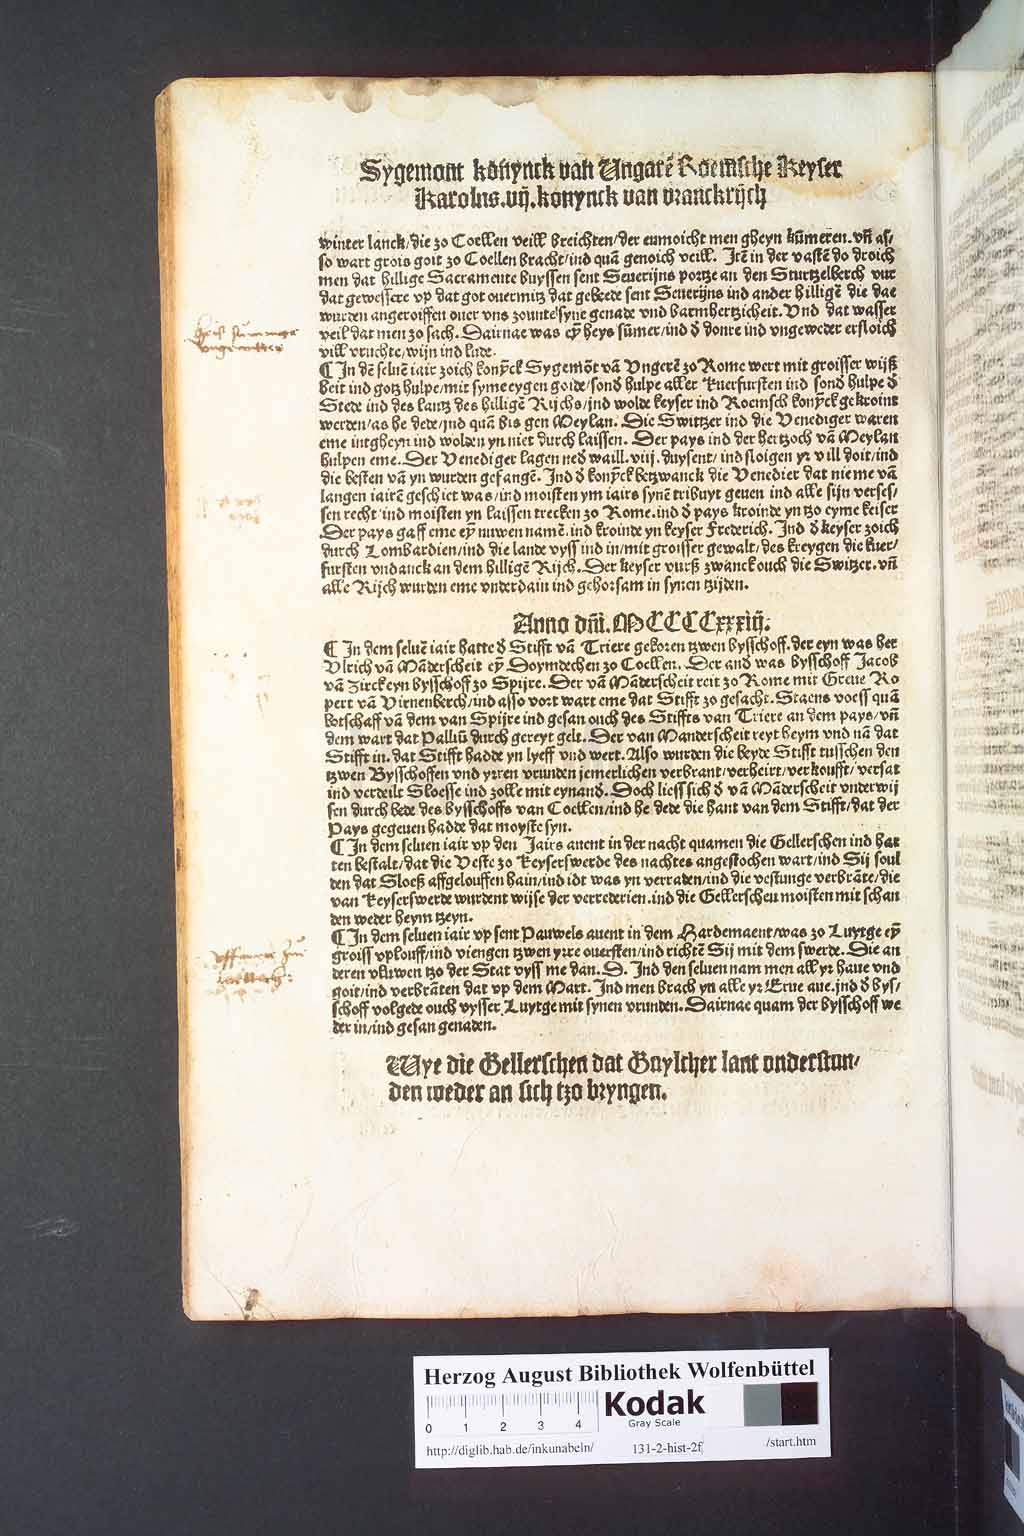 Sygemont konynck van Ungarē Roemsche Keyser
Karolus.vij.konynck van vranckrijch
winter lanck/die zo Coellen veill breichten/der enmoicht men gheyn kūmeren.vn̄ as/
so wart grois goit zo Coellen bracht/ind quā genoich veill. Itē in der vastē do droich
men dat hillige Sacramente buyssen sent Seuerijns portze an den Sturtzelberch vur
dat gewessere vp dat got ouermitz dat gebede sent Seuerijns ind ander hilligē die dae
wurden angeroiffen ouer vns zounte syne genade vnd barmhertzicheit. Vnd dat wasser
veil dat men zo sach. Dairnae was eȳ heys sūmer/ind d̄ donre ind vngeweder ersloich
vill vruchte/wijn ind lude.
¶ In dē seluē iair zoich konȳck Sygemōt vā Vngerē zo Rome wert mit groisser wijß
heit ind gotz hulpe/mit syme eygen goide/sond̄ hulpe aller Kuerfursten ind sond̄ hulpe d̄
Stede ind des lantz des hilligē Rijchs/ind wolde keyser ind Roemsch konȳck gekroint
werden/as he dede/ind quā bis gen Meylan. Die Switzer ind die Venediger waren
eme intgheyn ind wolden yn niet durch laissen. Der pays ind der hertzoch vā Meylan
hulpen eme. Der Venediger lagen ned̄ waill.viij.duysent/ind sloigen yr vill doit/ind
die besten vā yn wurden gefangē. Ind d̄ konȳck betzwanck die Venedier dat nie me vā
langen iairē geschiet was/ind moisten ym iairs synē tribuyt geuen ind alle sijn verses/
sen recht ind moisten yn laissen trecken zo Rome.ind d̄ pays kroinde yn tzo eyme keiser
Der pays gaff eme eȳ nuwen namē.ind kroinde yn keyser Frederich. Ind d̄ keyser zoich
durch Lombardien/ind die lande vyss ind in/mit groisser gewalt/des kreygen die kuer/
fursten vndanck an dem hilligē Rijch. Der keyser vurß zwanck ouch die Switzer.vn̄
alle Rijch wurden eme vnderdain ind gehorsam in synen tzijden.
Anno dn̄i.MCCCCxxxiij.
¶ In dem seluē iair hatte d̄ Stifft vā Triere gekoren tzwen bysschoff.der eyn was her
Vlrich vā Māderscheit eȳ Doymdechen zo Coellen. Der and̄ was bysschoff Jacob
vā Zirck eyn bysschoff zo Spijre. Der vā Māderscheit reit zo Rome mit Greue Ro
pert vā Virnenberch/ind asso vort wart eme dat Stifft zo gesacht. Staens voess quā
botschaff vā dem van Spijre ind gesan ouch des Stiffts van Triere an dem pays/vn̄
dem wart dat Palliū durch gereyt gelt. Der van Manderscheit reyt heym vnd nā dat
Stifft in.dat Stifft hadde yn lyeff vnd wert. Also wurden die beyde Stifft tusschen den
tzwen Bysschoffen vnd yrren vrunden jemerlichen verbrant/verheirt/verkoufft/versat
ind verdeilt Sloesse ind zolle mit eynand̄. Doch liess sich d̄ vā Māderscheit vnderwij
sen durch bede des bysschoffs van Coellen/ind he dede die hant van dem Stifft/dat der
Pays gegeuen hadde dat moyste syn.
¶ In dem seluen iair vp den Jairs auent in der nacht quamen die Gellerschen ind hat
ten bestalt/dat die Veste zo Keyserswerde des nachtes angestochen wart/ind Sij soul
den dat Sloeß affgelouffen hain/ind idt was yn verraden/ind die vestunge verbrāte/die
van Keyserswerde wurdent wijse der verrederien.ind die Gellerschen moisten mit schan
den weder heym tzeyn.
¶ In dem seluen iair vp sent Pauwels auent in dem Hardemaent/was zo Luytge eȳ
groiss vplouff/ind viengen tzwen yrre ouersten/ind richtē Sij mit dem swerde. Die an
deren vluwen tzo der Stat vyss me dan. D. Ind den seluen nam men all yr haue vnd
goit/ind verbrāten dat vp dem Mart. Ind men brach yn alle yr Erue aue.ind d̄ bys/
schoff volgede ouch vysser Luytge mit synen vrunden. Dairnae quam der bysschoff we
der in/ind gesan genaden.
Wye die Gellerschen dat Guylcher lant onderstun/
den weder an sich tzo bryngen.
Herzog August Bibliothek Wolfenbüttel
0 1 2 3 4
Kodak
Gray Scale
http://diglib.hab.de/inkunabeln/ 131-2-hist-2f /start.htm